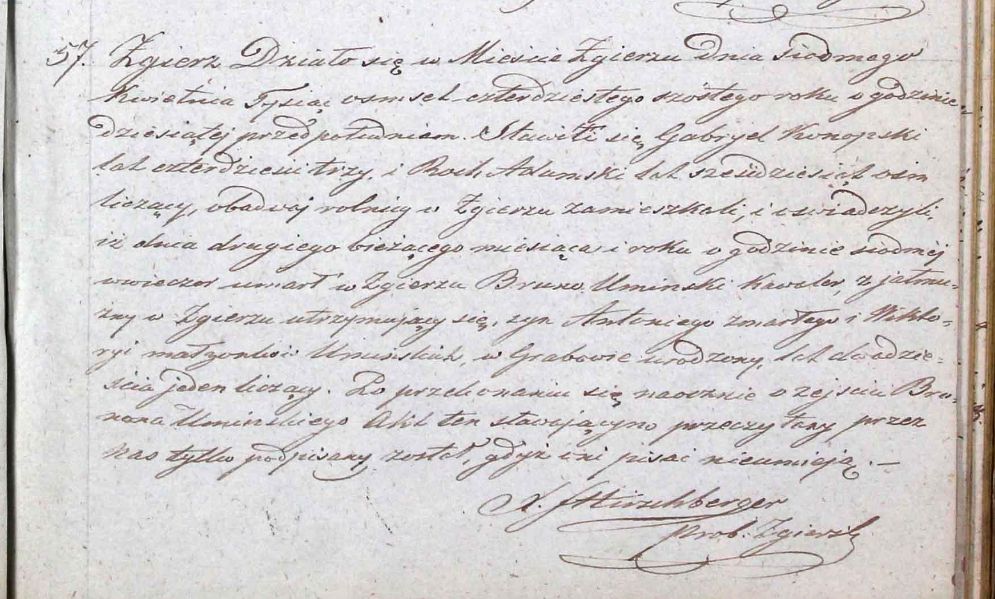 57. Zgierz Działo się w Mieście Zgierzu dnia siodmego
Kwietnia Tysiąc osmset czterdziestego szostego roku o godzinie
dziesiątej przed południem. Stawili się Gabryel Konopski
lat czterdzieści trzy, i Roch Adamski lat sześdziesiąt osm
liczący, obadwaj rolnicy w Zgierzu zamieszkali, i oswiadczyli,
iż dnia drugiego bieżącego miesiąca i roku o godzinie siodmej
wwieczor umarł w Zgierzu Bruno Uminski Kawaler, z jałmu-
żny w Zgierzu utrzymujący się, syn Antoniego zmarłego i Wikto-
ryi małżonków Uminskich, w Grabowie urodzony, lat dwadzie-
scia jeden liczący. Po przekonaniu się naocznie o zejściu Bru-
nona Uminskiego Akt ten stawającym przeczytany przez
Nas tylko podpisany został, gdyż inni pisać nieumieją. —
X. J Hirszberger
Prob. Zgierz